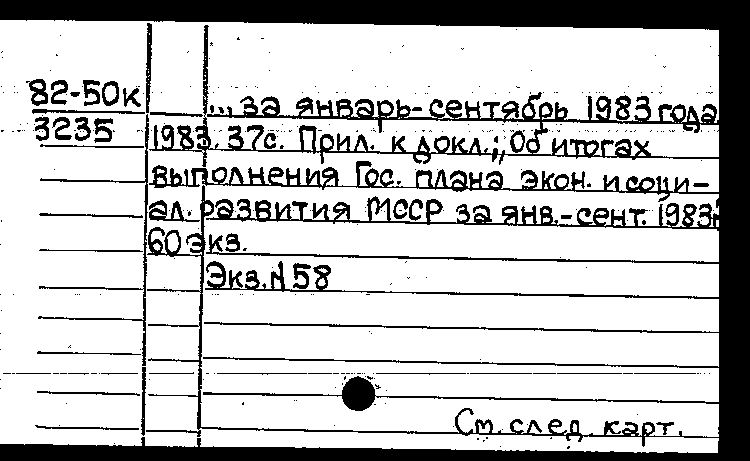 82-50к
3235
..., за январь-сентябрь 1983 года
1983. 37с. Прил. к докл.: „Об итогах
выполнения Гос. плана экон. и соци-
ал. развития МССР за янв.-сент. 1983г
60 экз.
Экз. N 58
См. след. карт.